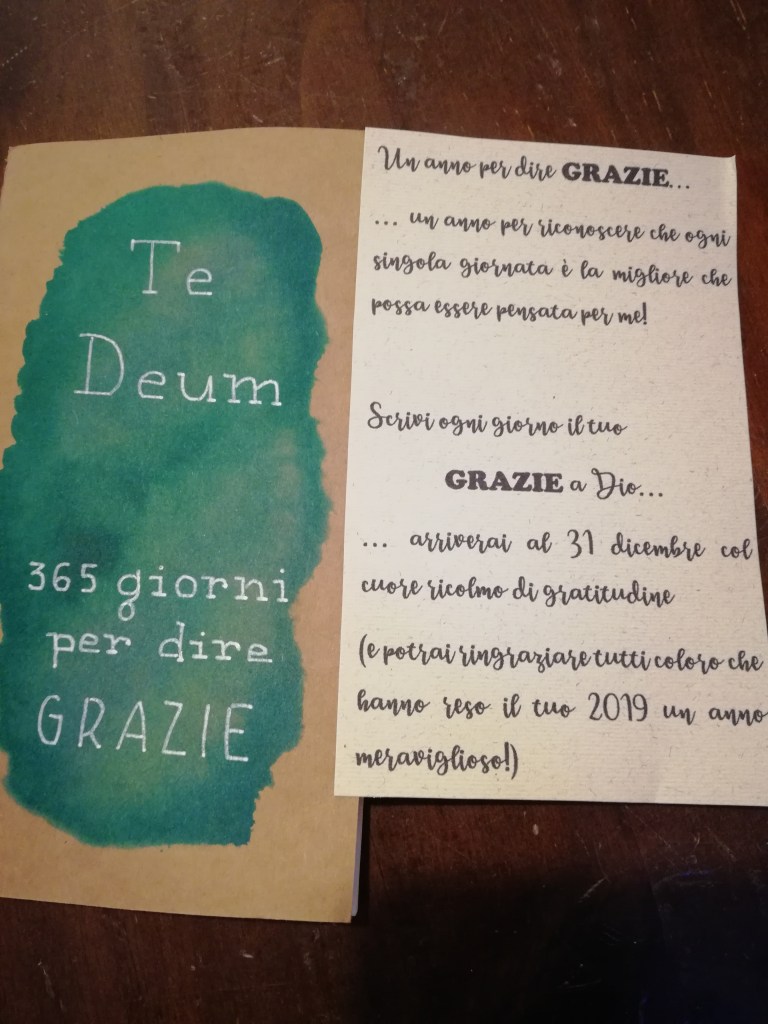 Te
Deum
365 giorni
per dire
GRAZIE
Un anno per dire GRAZIE...
... un anno per riconoscere che ogni
singola giornata è la migliore che
possa essere pensata per me!
Scrivi ogni giorno il tuo
GRAZIE a Dio...
... arriverai al 31 dicembre col
cuore ricolmo di gratitudine
(e potrai ringraziare tutti coloro che
hanno reso il tuo 2019 un anno
meraviglioso!)